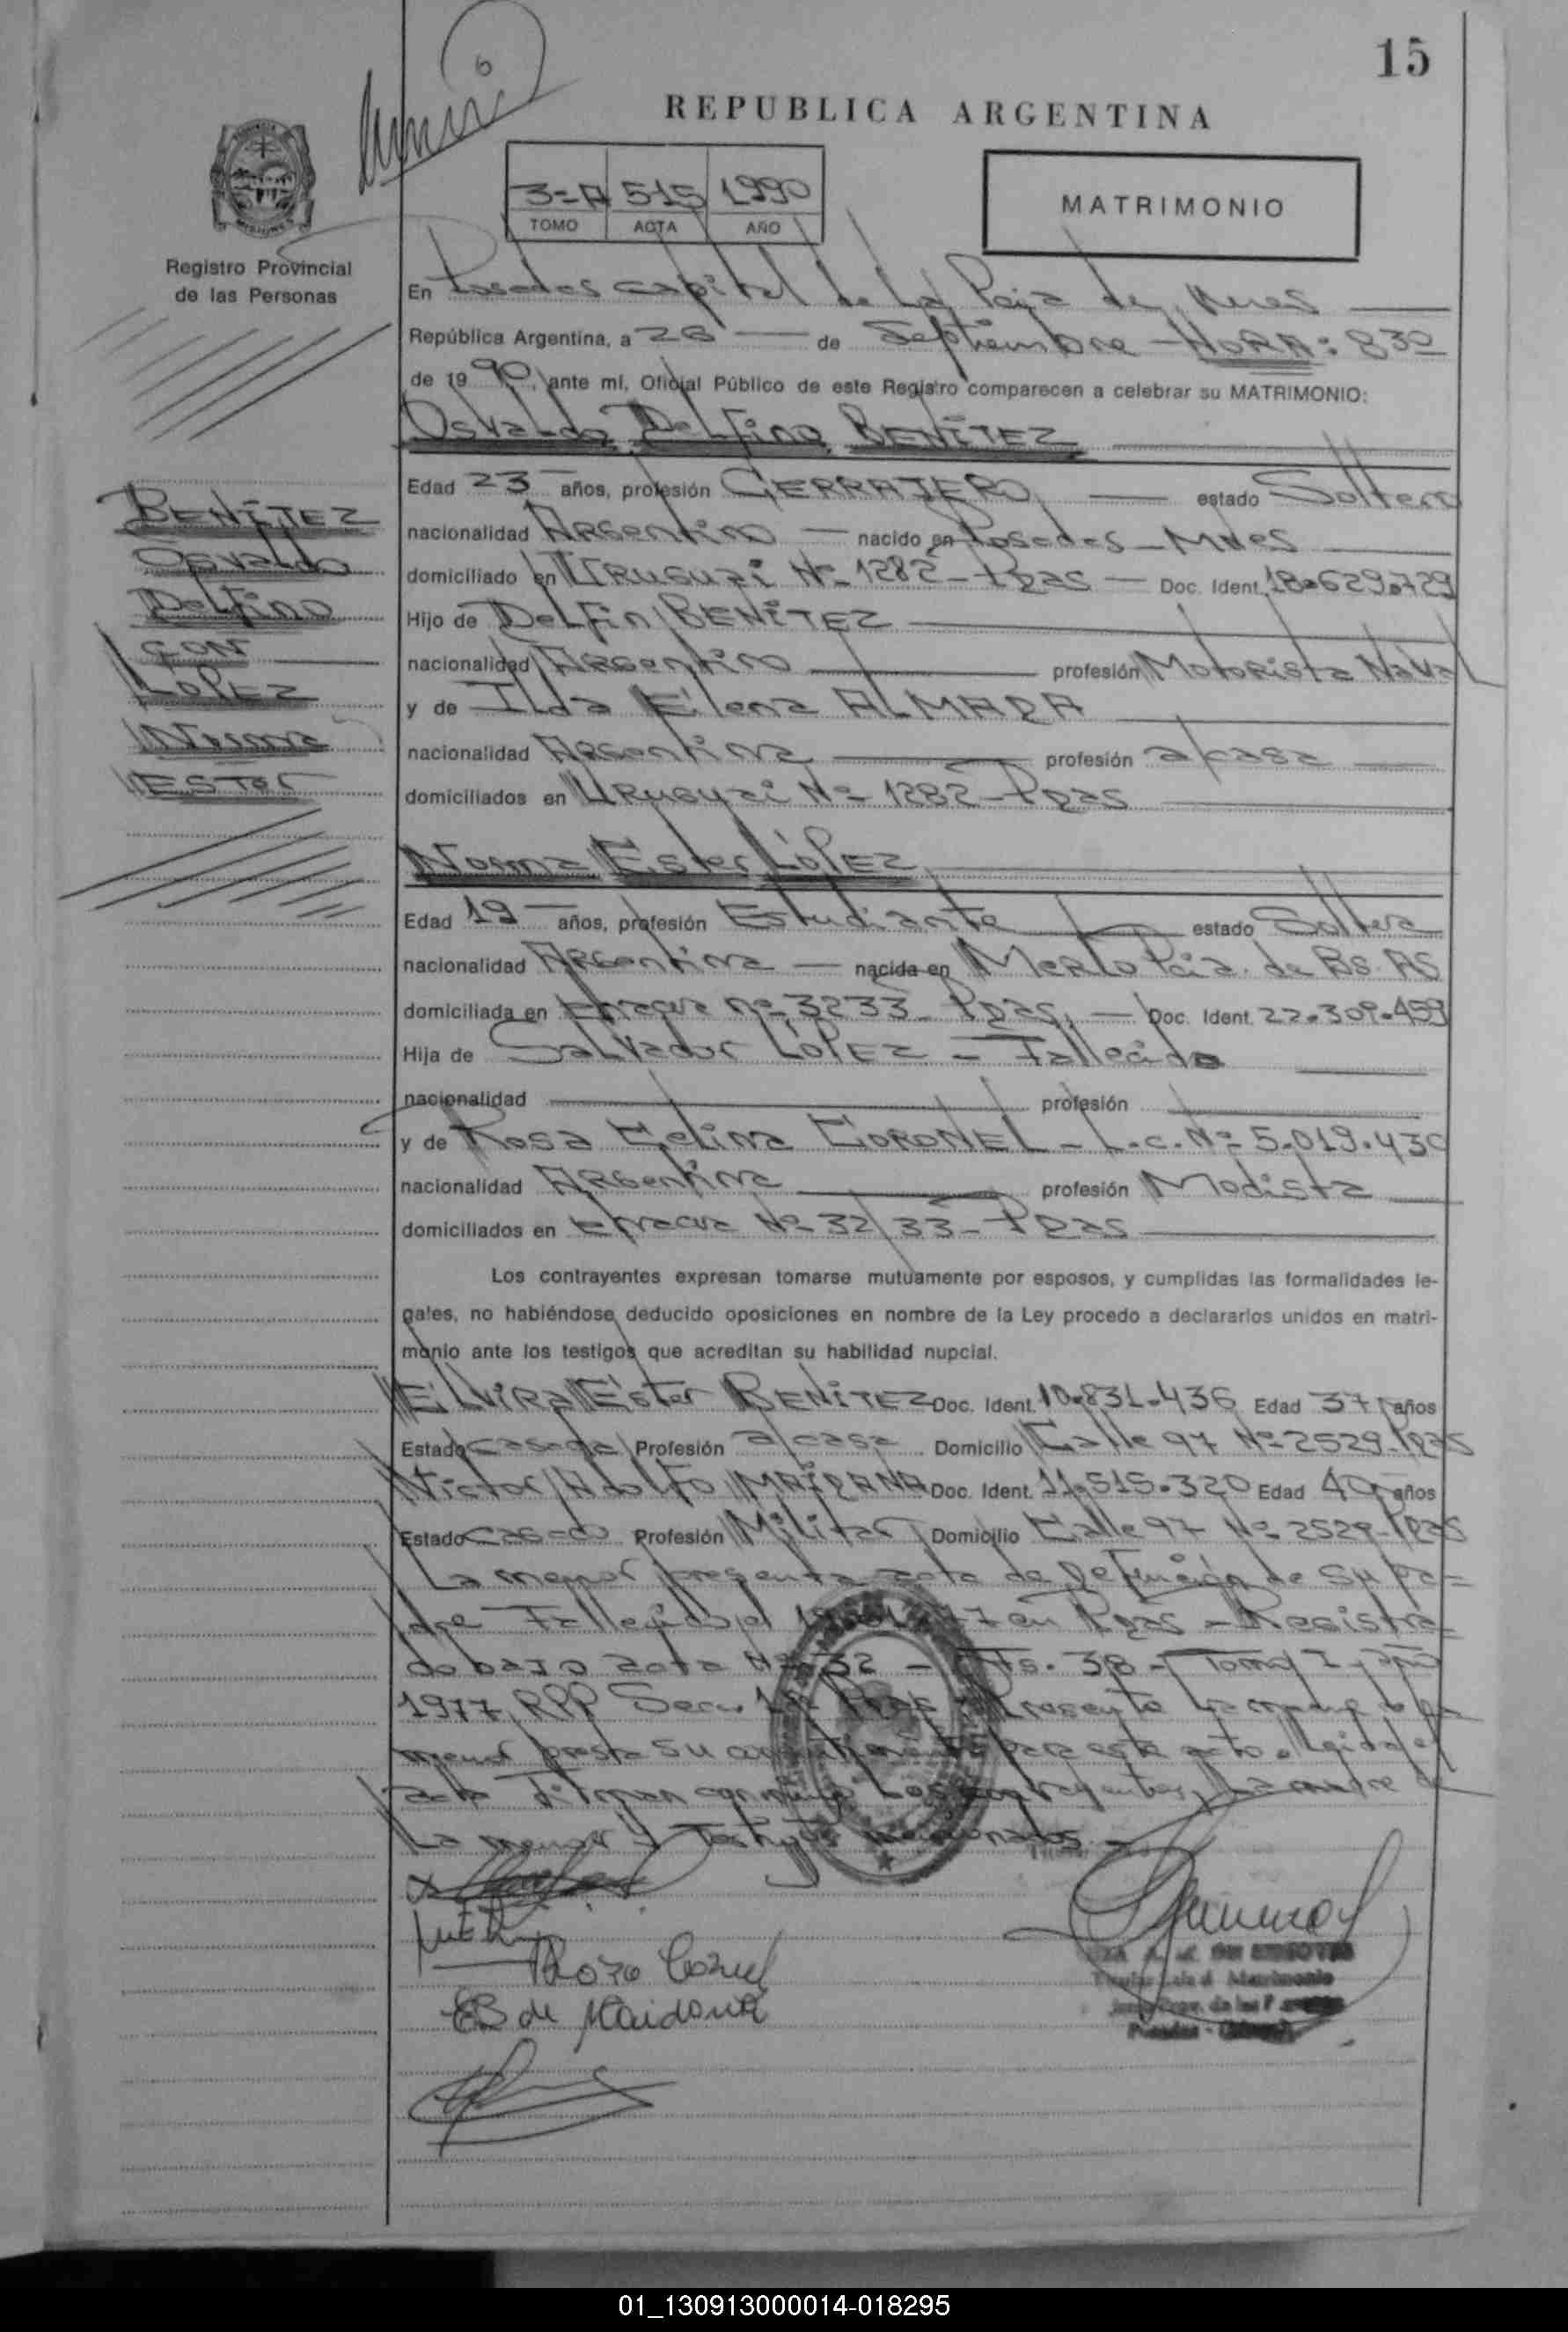 15
REPUBLICA ARGENTINA
3=A 515 1990
TOMO ACTA AÑO
MATRIMONIO
Registro Provincial
de las Personas
En Posadas capital de La Pcia de Mnes
República Argentina, a 28 de Septiembre - HORA: 830
de 1990, ante mí, Oficial Público de este Registro comparecen a celebrar su MATRIMONIO:
Osvaldo Delfino BENÍTEZ
Edad 23 años, profesión CERRAJERO estado Soltero
nacionalidad Argentino nacido en Posadas - Mnes
domiciliado en Uruguai Nº 1282 - Pdas - Doc. Ident. 18.629.729
Hijo de Delfin BENÍTEZ
nacionalidad Argentino profesión Motorista Naval
y de Ilda Elena ALMADA
nacionalidad Argentina profesión a/casa
domiciliados en Uruguai Nº 1282 - Pdas
BENÍTEZ
Osvaldo
Delfino
CON
LÓPEZ
Norma
ESTER
Norma Ester LÓPEZ
Edad 19 años, profesión Estudiante estado Soltera
nacionalidad Argentina nacida en Merlo Pcia. de Bs. As
domiciliada en nº 3233 - Pdas. - Doc. Ident. 22.309.459
Hija de Salvador LÓPEZ - Fallecido
nacionalidad profesión
y de Rosa Celina CORONEL - L.C. Nº 5.019.430
nacionalidad Argentina profesión Modista
domiciliados en Nº 3233 - Pdas
Los contrayentes expresan tomarse mutuamente por esposos, y cumplidas las formalidades le-
gales, no habiéndose deducido oposiciones en nombre de la Ley procedo a declararlos unidos en matri-
monio ante los testigos que acreditan su habilidad nupcial.
ELVIRA Ester BENÍTEZ Doc. Ident. 10.831.436 Edad 37 años
Estado casada Profesión a/casa Domicilio Calle 97 Nº 2529 - Pdas
Victor Adolfo MAIDANA Doc. Ident. 11.515.320 Edad 40 años
Estado casado Profesión Militar Domicilio Calle 97 Nº 2529 - Pdas
La menor presenta acta de Defunción de su pa-
dre Fallecido el 77 en Pdas - Registra
do bajo acta Nº 32 - Fts. 38 - Tomo I, año
1977, RPP Secc. 1ª Pdas Presente La madre de la
menor presta su para este acto. Leida el
acta Firman conmigo Los contrayentes, La madre de
La menor y Testigos mencionados.-
Rosa Coronel
EB de Maidana
Matrimonio
de las
Posadas -
01_130913000014-018295